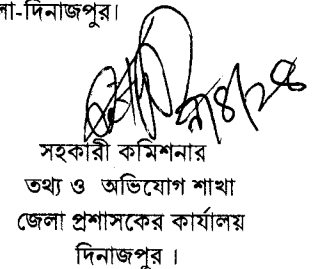 লা-দিনাজপুর।
সহকারী কমিশনার
তথ্য ও অভিযোগ শাখা
জেলা প্রশাসকের কার্যালয়
দিনাজপুর ।